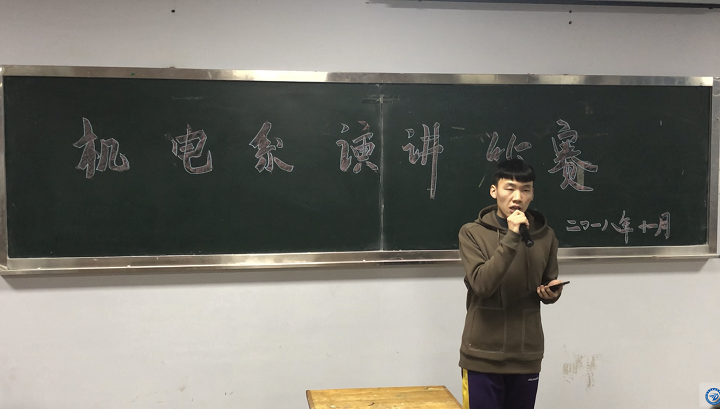 机电系演讲比赛
二〇一八年十一月